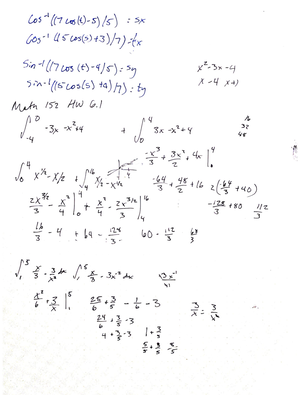 cos⁻¹((7cos(t)-5)/5) = sx
cos⁻¹((5cos(s)+3)/7) = tx
sin⁻¹((7cos(t)-4)/5) = sy
sin⁻¹((5cos(s)+4)/7) = ty
x²-3x-4
x-4 x+1
Math 152 HW 6.1
∫₋₄⁰ -3x-x²+4 + ∫₀⁴ 3x-x²+4
16
32
48
-x³/3 + 3x²/2 + 4x |₀⁴
∫₀⁴ x^1/2 - x/2 + ∫₄¹⁶ x/2 - x^1/2
-64/3 + 48/2 + 16 2(-64/3 + 40)
2x^3/2/3 - x²/4 |₀⁴ + x²/4 - 2x^3/2/3 |₄¹⁶
-128/3 + 80 112/3
16/3 - 4 + 64 - 128/3 60 - 112/3 68/3
∫₁⁵ x/3 - 3/x² dx ∫₁⁵ x/3 - 3x⁻² dx
x²/6 + 3/x |₁⁵ 25/6 + 3/5 - 1/6 - 3
3/x = 3/x²
24/6 + 3/5 - 3
4 + 3/5 - 3 1 + 3/5
5/5 + 3/5 8/5